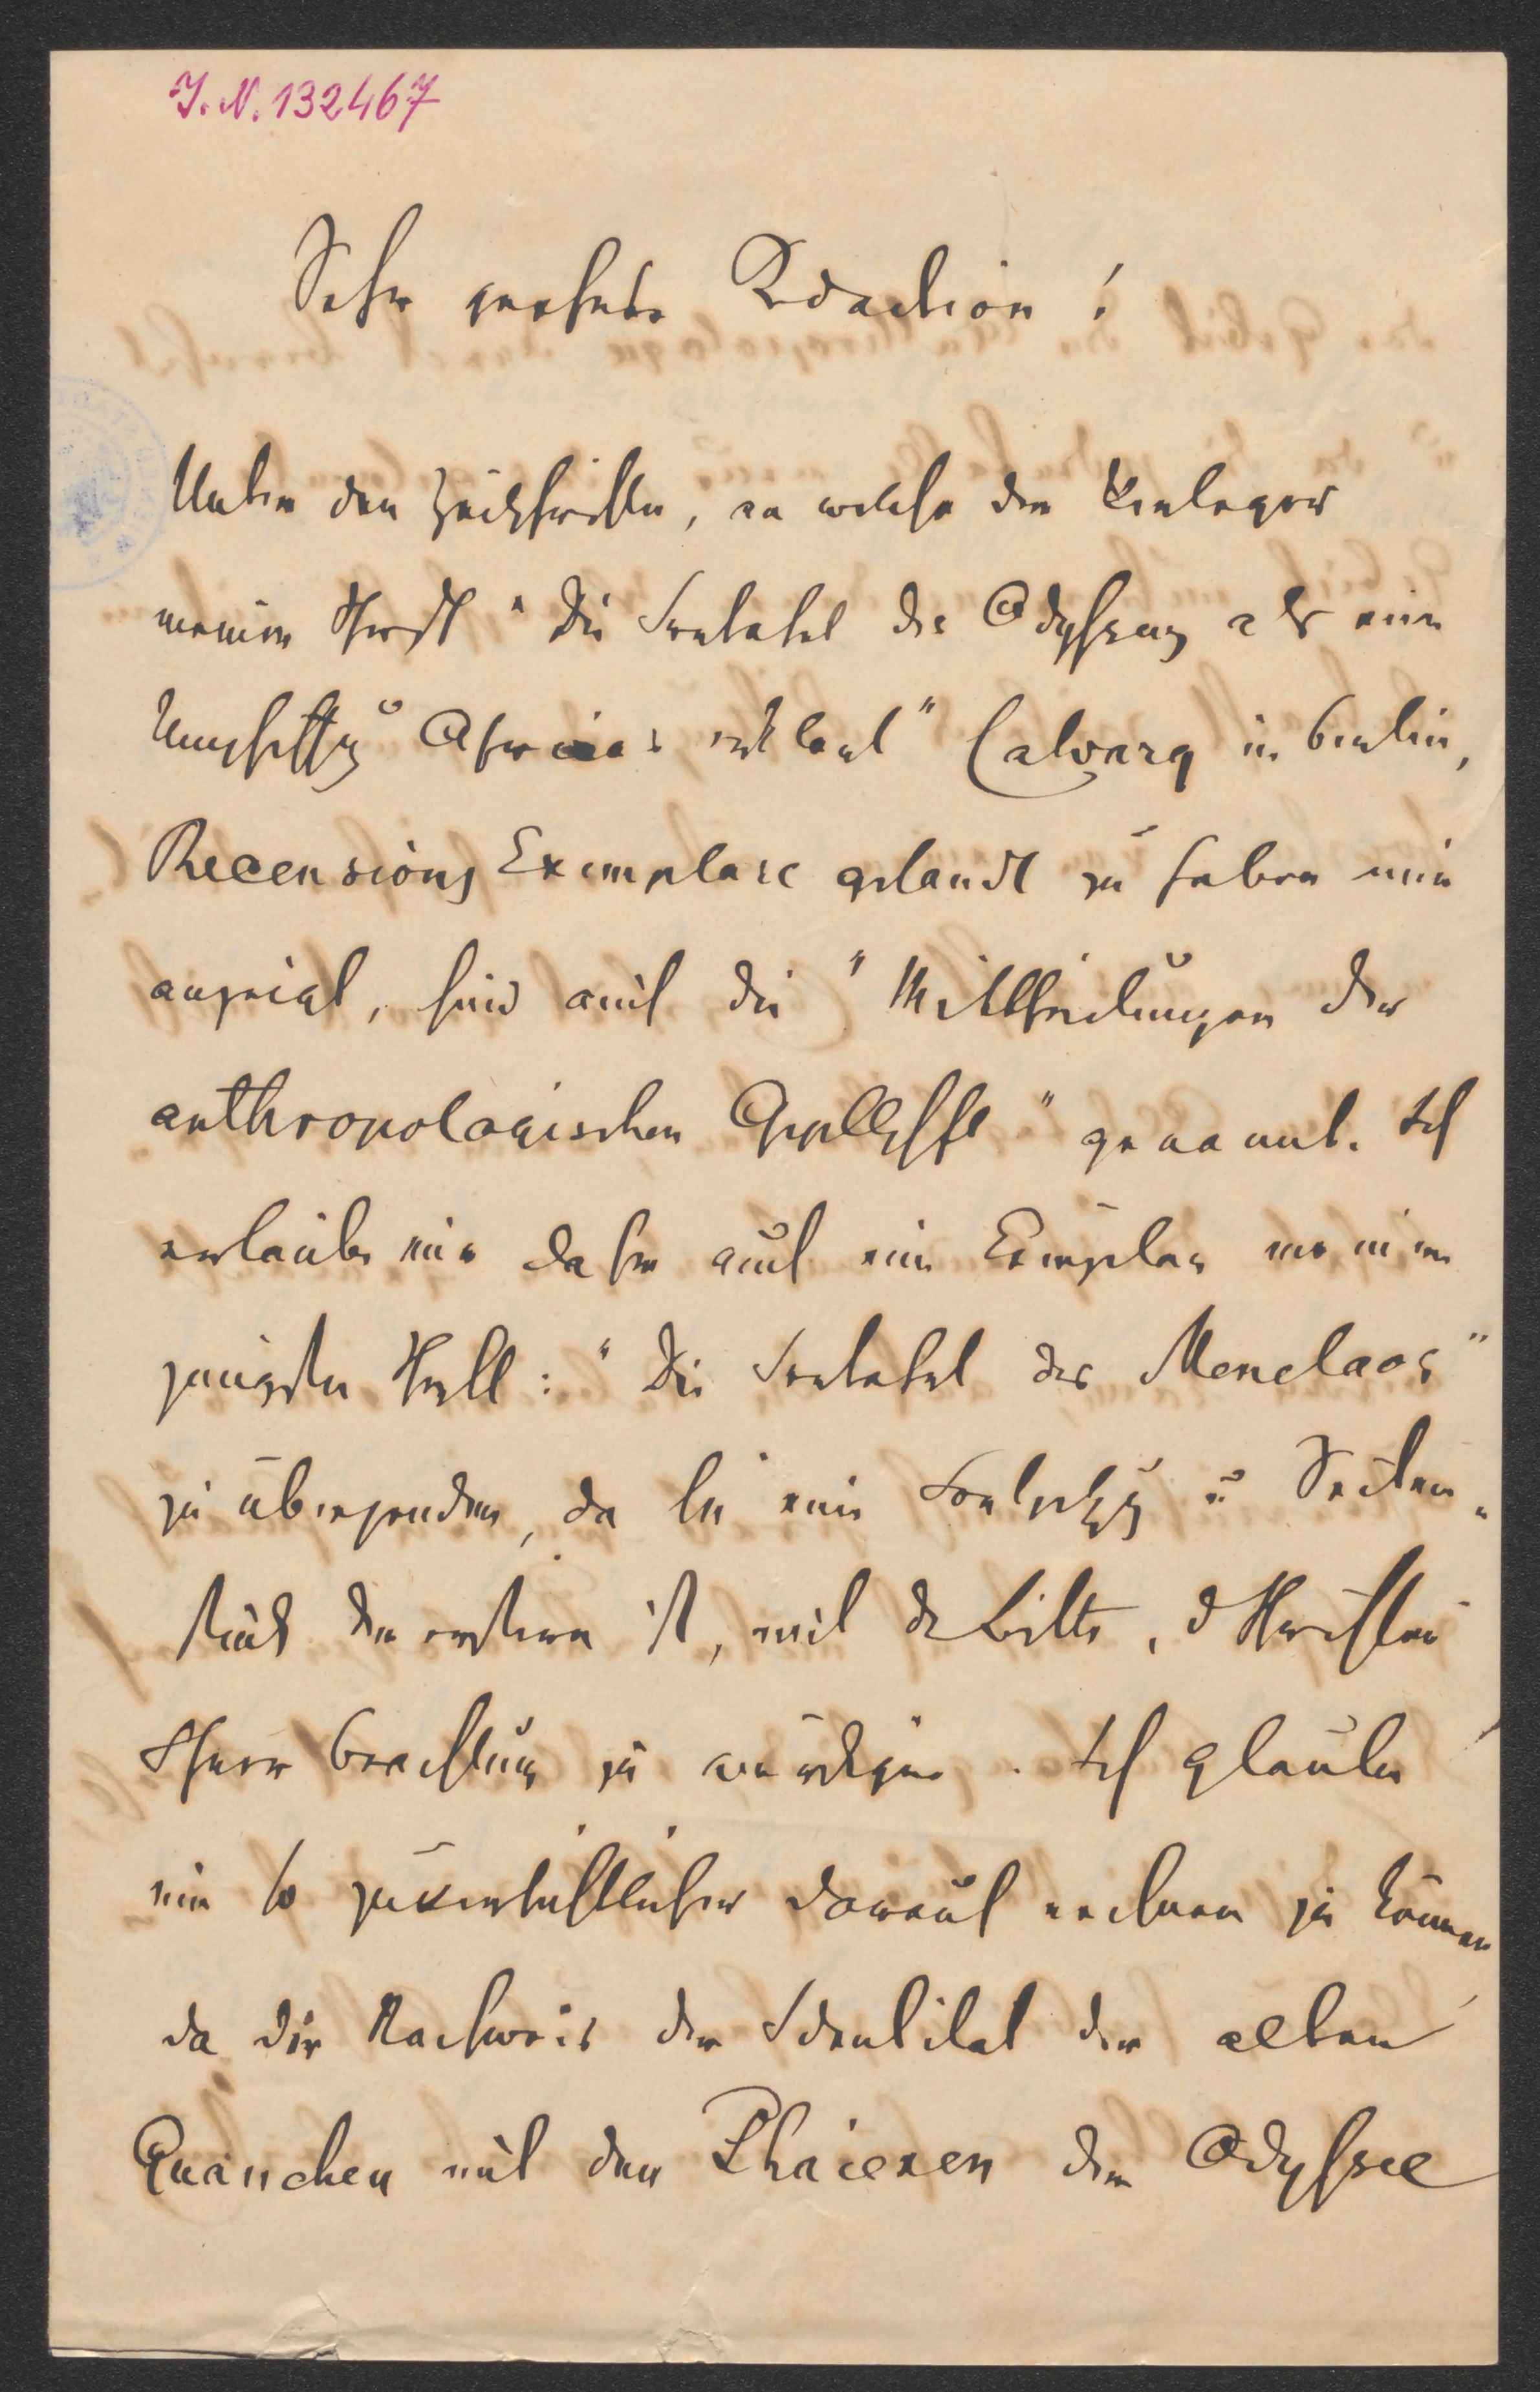 J. N. 132467
Sehr geehrte Redaction!
Unter den Zeitschriften, an welche der Verleger
meiner Schrift "Die Irrfahrt des Odysseus als eine
Umschiffg Afrikas erklärt" Calvary in Berlin,
Recensions Exemplare gesandt zu haben mir
anzeigt, sind auch die "Mittheilungen der
anthropologischen Gesellschft" genannt. Ich
erlaube mir daher auch ein Exemplar meiner
jüngsten Schrft: "Die Irrfahrt des Menelaos"
zu übersenden, da sie eine Fortsetzg u Seiten-
stück der ersteren ist, mit der Bitte, d Schriftchen
Ihrer Beachtung zu würdigen. Ich glaube
um so zuversichtlicher darauf rechnen zu können
da der Nachweis der Identität der alten
Guanchen mit den Phäaken der Odyssee